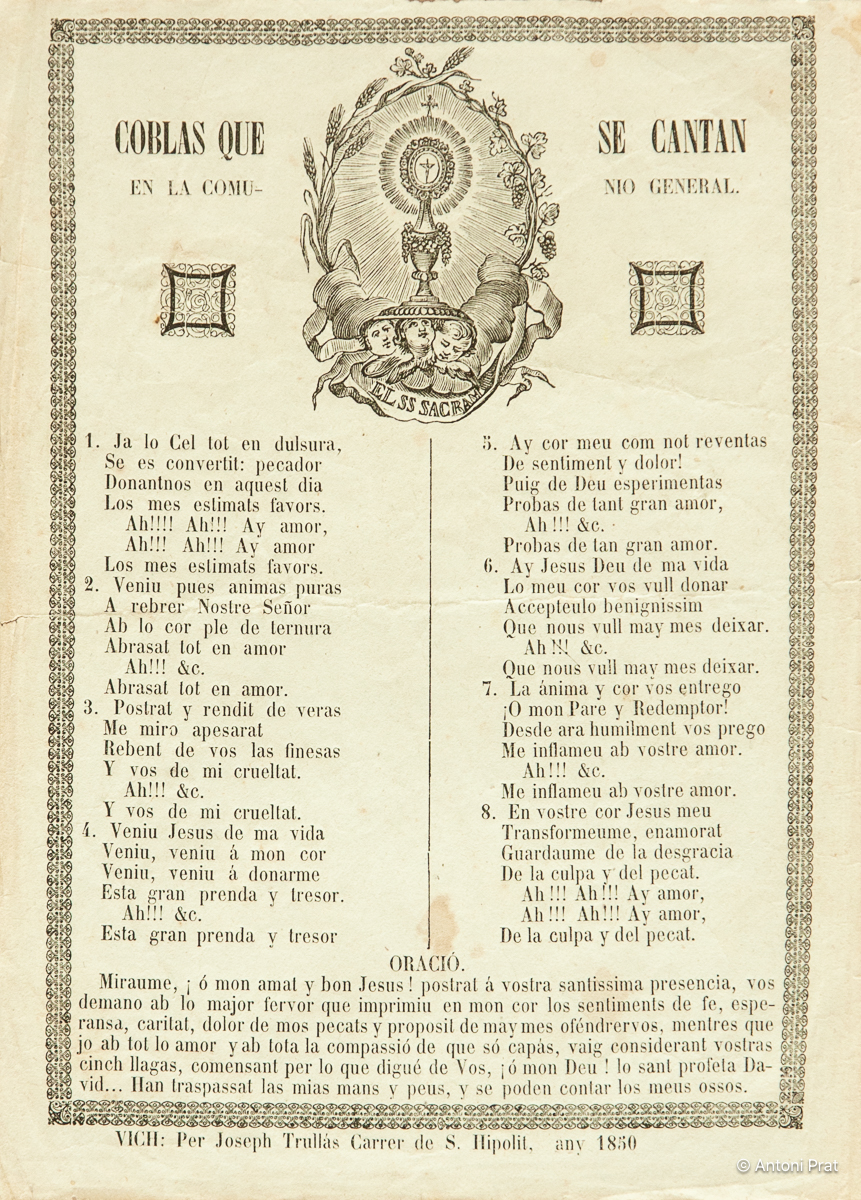 COBLAS QUE SE CANTAN
EN LA COMU- NIO GENERAL.
EL SS SACRAM
1. Ja lo Cel tot en dulsura,
Se es convertit: pecador
Donantnos en aquest dia
Los mes estimats favors.
Ah!!!! Ah!!! Ay amor,
Ah!!! Ah!!! Ay amor
Los mes estimats favors.
2. Veniu pues animas puras
A rebrer Nostre Señor
Ab lo cor ple de ternura
Abrasat tot en amor
Ah!!! &c.
Abrasat tot en amor.
3. Postrat y rendit de veras
Me miro apesarat
Rebent de vos las finesas
Y vos de mi crueltat.
Ah!!! &c.
Y vos de mi crueltat.
4. Veniu Jesus de ma vida
Veniu, veniu á mon cor
Veniu, veniu á donarme
Esta gran prenda y tresor.
Ah!!! &c.
Esta gran prenda y tresor
5. Ay cor meu com not reventas
De sentiment y dolor!
Puig de Deu esperimentas
Probas de tant gran amor,
Ah!!! &c.
Probas de tan gran amor.
6. Ay Jesus Deu de ma vida
Lo meu cor vos vull donar
Accepteulo benignissim
Que nous vull may mes deixar.
Ah!!! &c.
Que nous vull may mes deixar.
7. La ánima y cor vos entrego
¡O mon Pare y Redemptor!
Desde ara humilment vos prego
Me inflameu ab vostre amor.
Ah!!! &c.
Me inflameu ab vostre amor.
8. En vostre cor Jesus meu
Transformeume, enamorat
Guardaume de la desgracia
De la culpa y del pecat.
Ah!!! Ah!!! Ay amor,
Ah!!! Ah!!! Ay amor,
De la culpa y del pecat.
ORACIÓ.
Miraume, ¡ ó mon amat y bon Jesus! postrat á vostra santissima presencia, vos
demano ab lo major fervor que imprimiu en mon cor los sentiments de fe, espe-
ransa, caritat, dolor de mos pecats y proposit de may mes oféndrervos, mentres que
jo ab tot lo amor y ab tota la compassió de que só capás, vaig considerant vostras
cinch llagas, comensant per lo que digué de Vos, ¡ó mon Deu ! lo sant profeta Da-
vid... Han traspassat las mias mans y peus, y se poden contar los meus ossos.
VICH: Per Joseph Trullás Carrer de S. Hipolit, any 1850
© Antoni Prat